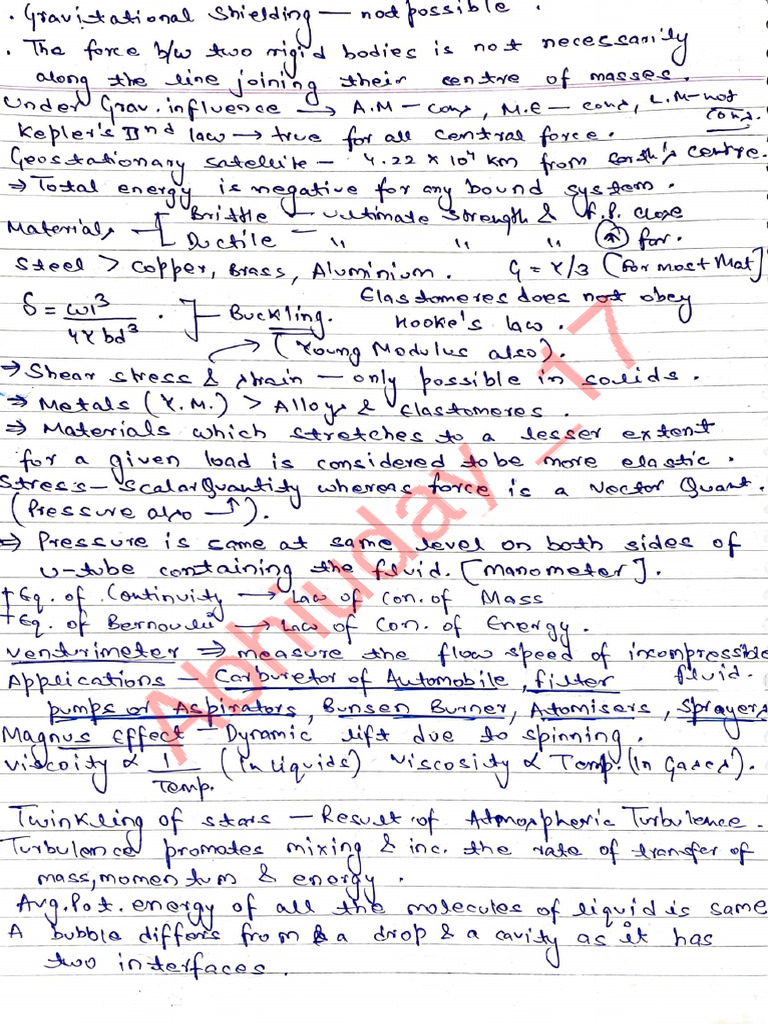 . Gravitational Shielding — not possible .
. The force b/w two rigid bodies is not necessarily
along the line joining their centre of masses.
Under Grav. influence → A.M — cons, M.E — cons, L.M — not
cons.
Kepler's IInd law → true for all central force.
Geostationary satellite — 4.22 × 10⁴ km from earth's centre.
⇒ Total energy is negative for any bound system.
Materials Brittle — ultimate strength & f.p. close
Ductile — " " " far.
Steel > Copper, Brass, Aluminium. G = Y/3 [for most Mat]
δ = wl³/4Ybd³ . Buckling. Elastomeres does not obey
Hooke's law .
(Young Modulus also).
⇒ Shear stress & strain — only possible in solids .
⇒ Metals (Y.M.) > Alloys & Elastomeres .
⇒ Materials which stretches to a lesser extent
for a given load is considered to be more elastic .
Stress — Scalar Quantity whereas force is a Vector Quant.
(Pressure also → ↑).
⇒ Pressure is same at same level on both sides of
U-tube containing the fluid. [Manometer].
Eq. of Continuity → Law of Con. of Mass
Eq. of Bernoulli → Law of Con. of Energy .
Venturimeter ⇒ measure the flow speed of incompressible
fluid.
Applications — Carburetor of Automobile, filter
pumps or Aspirators, Bunsen Burner, Atomisers, Sprayers
Magnus Effect — Dynamic lift due to spinning .
Viscoity ∝ 1/Temp. (In Liquids) Viscosity ∝ Temp. (In Gases).
Twinkling of stars — Result of Atmospheric Turbulence .
Turbulence promotes mixing & inc. the rate of transfer of
mass, momentum & energy .
Avg. Pot. energy of all the molecules of liquid is same
A bubble differs from a drop & a cavity as it has
two interfaces .
Abhiuday_17